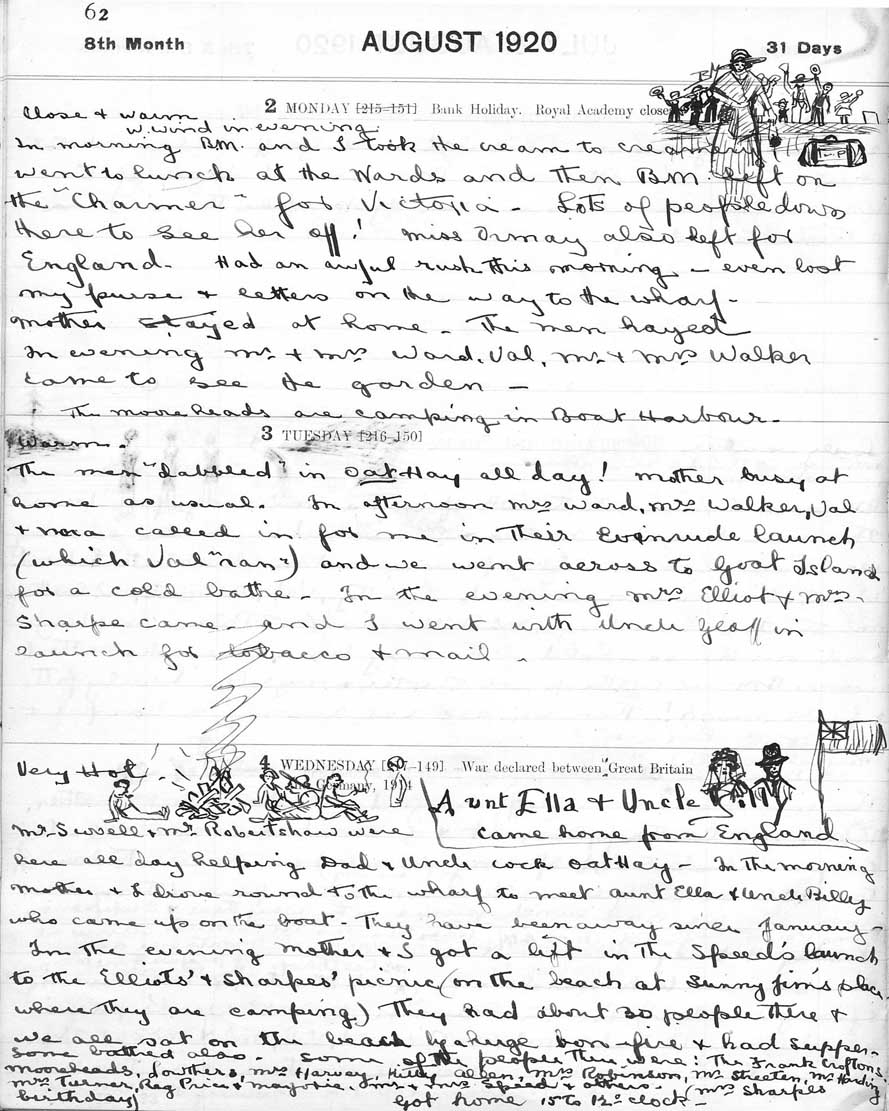 62
8th Month AUGUST 1920 31 Days
2 MONDAY [215-151] Bank Holiday. Royal Academy closes
Close & warm
W. wind in evening.
In morning B.M. and I took the cream to creamery
went to lunch at the Wards and then B.M. left on
the "Charmer" for Victoria - Lots of people down
there to see her off! Miss Ormay also left for
England. Had an awful rush this morning - even lost
my purse & letters on the way to the wharf -
Mother stayed at home - The men hayed
In evening Mr. & Mrs Ward, Val, Mr. & Mrs Walker
came to see the garden -
The Mooreheads are camping in Boat Harbour -
3 TUESDAY [216-150]
Warm.
The men "dabbled" in Oat Hay all day! Mother busy at
home as usual. In afternoon Mrs Ward, Mrs Walker, Val
& Nora called in for me in their Evinrude launch
(which Val "ran") and we went across to Goat Island
for a cold bathe - In the evening Mrs Elliot & Mrs
Sharpe came - and I went with Uncle Geoff in
launch for tobacco & mail.
4 WEDNESDAY [217-149] War declared between Great Britain
and Germany, 1914
Very Hot!
Aunt Ella & Uncle Bill
came home from England
Mr. S & Mr. Robertshaw were
here all day helping Dad & Uncle cock Oat Hay - In the morning
Mother & I drove round to the wharf to meet Aunt Ella & Uncle Billy
who came up on the boat - They have been away since January -
In the evening Mother & I got a lift in the Speed's launch
to the Elliots' & Sharpes' picnic (on the beach at Sunny Jim's place
where they are camping) They had about 30 people there &
we all sat on the beach by a huge bon-fire & had supper -
Some bathed also - Some of the people there were: The Frank Croftons
Mooreheads, Lowthers, Mrs Harvey, Hilty Allen, Mrs Robinson, Mr. Streeten, Mr Harding
Mrs Turner, Reg Price & Marjorie. Mr & Mrs Speed & others - (Mrs Sharpes
birthday)
Got home 15 to 12 o'clock -